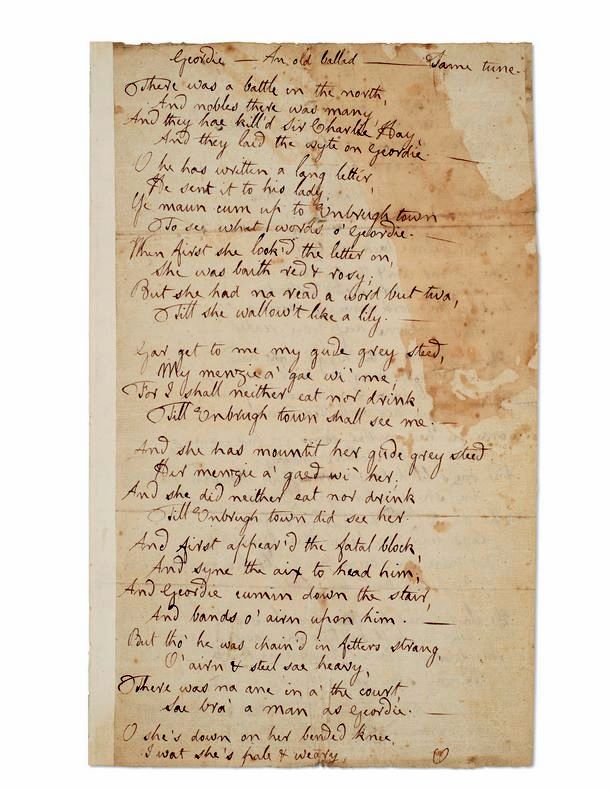 Geordie — An old ballad —— Same tune.
There was a battle in the north,
And nobles there was many,
And they hae kill'd Sir Charlie Hay,
And they laid the wyte on Geordie. —
O he has written a lang letter,
He sent it to his lady,
Ye maun cum up to Enbrugh town
To see what words o' Geordie. —
When first she look'd the letter on,
She was baith red & rosy;
But she had na read a word but twa,
Till she wallow't like a lily. —
Gar get to me my gude grey steed,
My menzie a' gae wi' me;
For I shall neither eat nor drink
Till Enbrugh town shall see me. —
And she has mountit her gude grey steed
Her menzie a' gaed wi' her;
And she did neither eat nor drink
Till Enbrugh town did see her.
And first appear'd the fatal block,
And syne the aix to head him,
And Geordie cumin down the stair,
And bands o' airn upon him. —
But tho' he was chain'd in fetters strang,
O' airn & steel sae heavy,
There was na ane in a' the court,
Sae bra' a man as Geordie. —
O she's down on her bended knee,
I wat she's pale & weary,